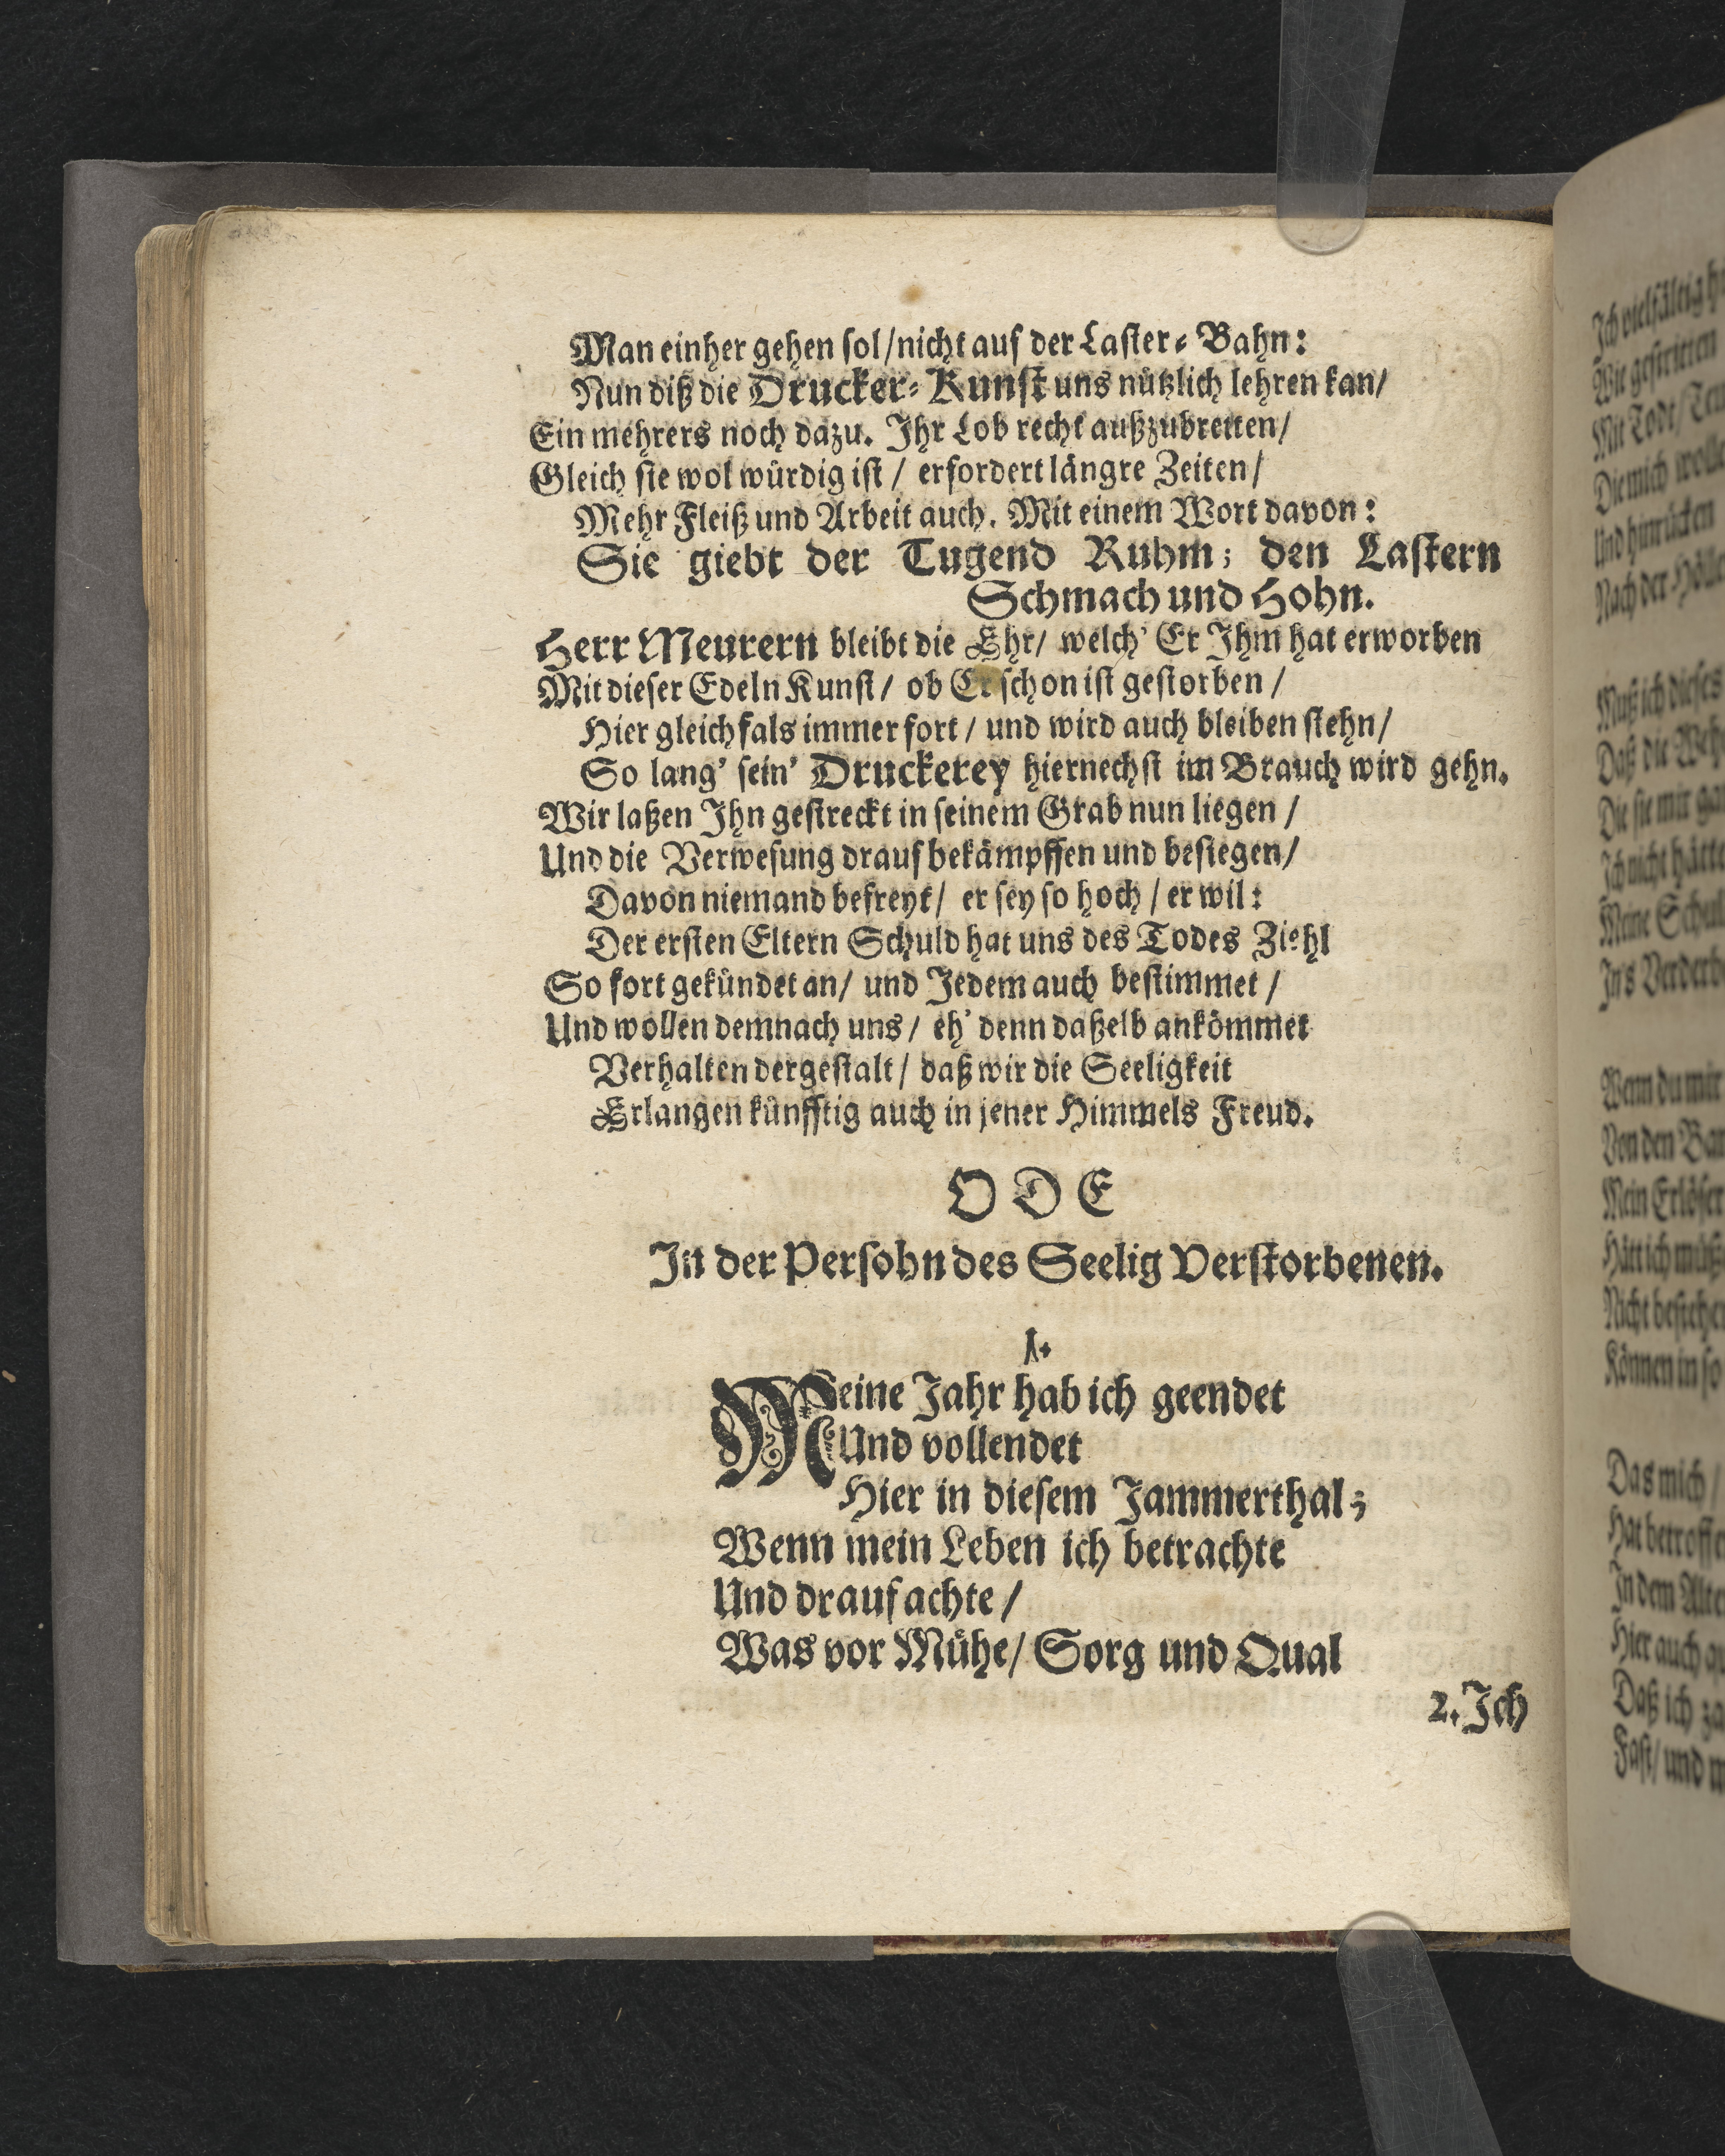 Man einher gehen ſol/nicht auf der Laſter-Bahn:
Nun diß die Drucker-Kunſt uns nützlich lehren kan/
Ein mehrers noch dazu. Ihr Lob recht außzubreiten/
Gleich ſie wol würdig iſt / erfordert längre Zeiten/
Mehr Fleiß und Arbeit auch. Mit einem Wort davon:
Sie giebt der Tugend Ruhm; den Laſtern
Schmach und Hohn.
Herr Meurern bleibt die Ehr/ welch' Er Ihm hat erworben
Mit dieſer Edeln Kunſt/ ob Er ſchon iſt geſtorben /
Hier gleichfals immerfort / und wird auch bleiben ſtehn/
So lang' ſein' Druckerey hiernechſt im Brauch wird gehn.
Wir laßen Ihn geſtreckt in ſeinem Grab nun liegen /
Und die Verweſung drauf bekämpffen und beſiegen/
Davon niemand befreyt/ er ſey ſo hoch / er wil:
Der erſten Eltern Schuld hat uns des Todes Ziehl
So fort gekündet an/ und Jedem auch beſtimmet /
Und wollen demnach uns / eh' denn daßelb ankömmet
Verhalten dergeſtalt/ daß wir die Seeligkeit
Erlangen künfftig auch in jener Himmels Freud.
ODE
In der Perſohn des Seelig Verſtorbenen.
1.
Meine Jahr hab ich geendet
Und vollendet
Hier in dieſem Jammerthal;
Wenn mein Leben ich betrachte
Und drauf achte /
Was vor Mühe/ Sorg und Qual
2. Ich
Ich vielfältig
Wie geſtritten
Mit Todt/
Die mich
Und hinrücken
Nach der
Muß ich dieſes
Daß die
Die ſie mir
Ich nicht hätte
Meine
In's
Wenn du mir
Von den
Mein Erlöſer
Hätt ich
Nicht
Können in ſo
Das mich /
Hat
In dem
Hier auch
Daß ich
Faſt/ und